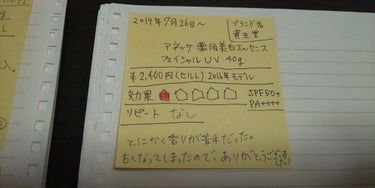 2019年7月26日〜
ブランド名
資生堂
アネッサ 薬用美白エッセンス
フェイシャルUV 40g
¥2,400円(セルレ) 2016年モデル
効果
SPF50+
PA++++
リピート なし
とにかく香りが苦手だった。
古くなってしまったので、ありがとうございました!